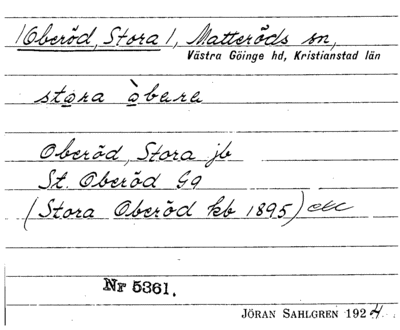 /Oberöd, Stora/, Matteröds sn,
Västra Göinge hd, Kristianstad län
sto̲ra ò̲bere
Oberöd, Stora jb
St. Oberöd Gg
(Stora Oberöd kb 1895)
Nr 5361.
JÖRAN SAHLGREN 1924.